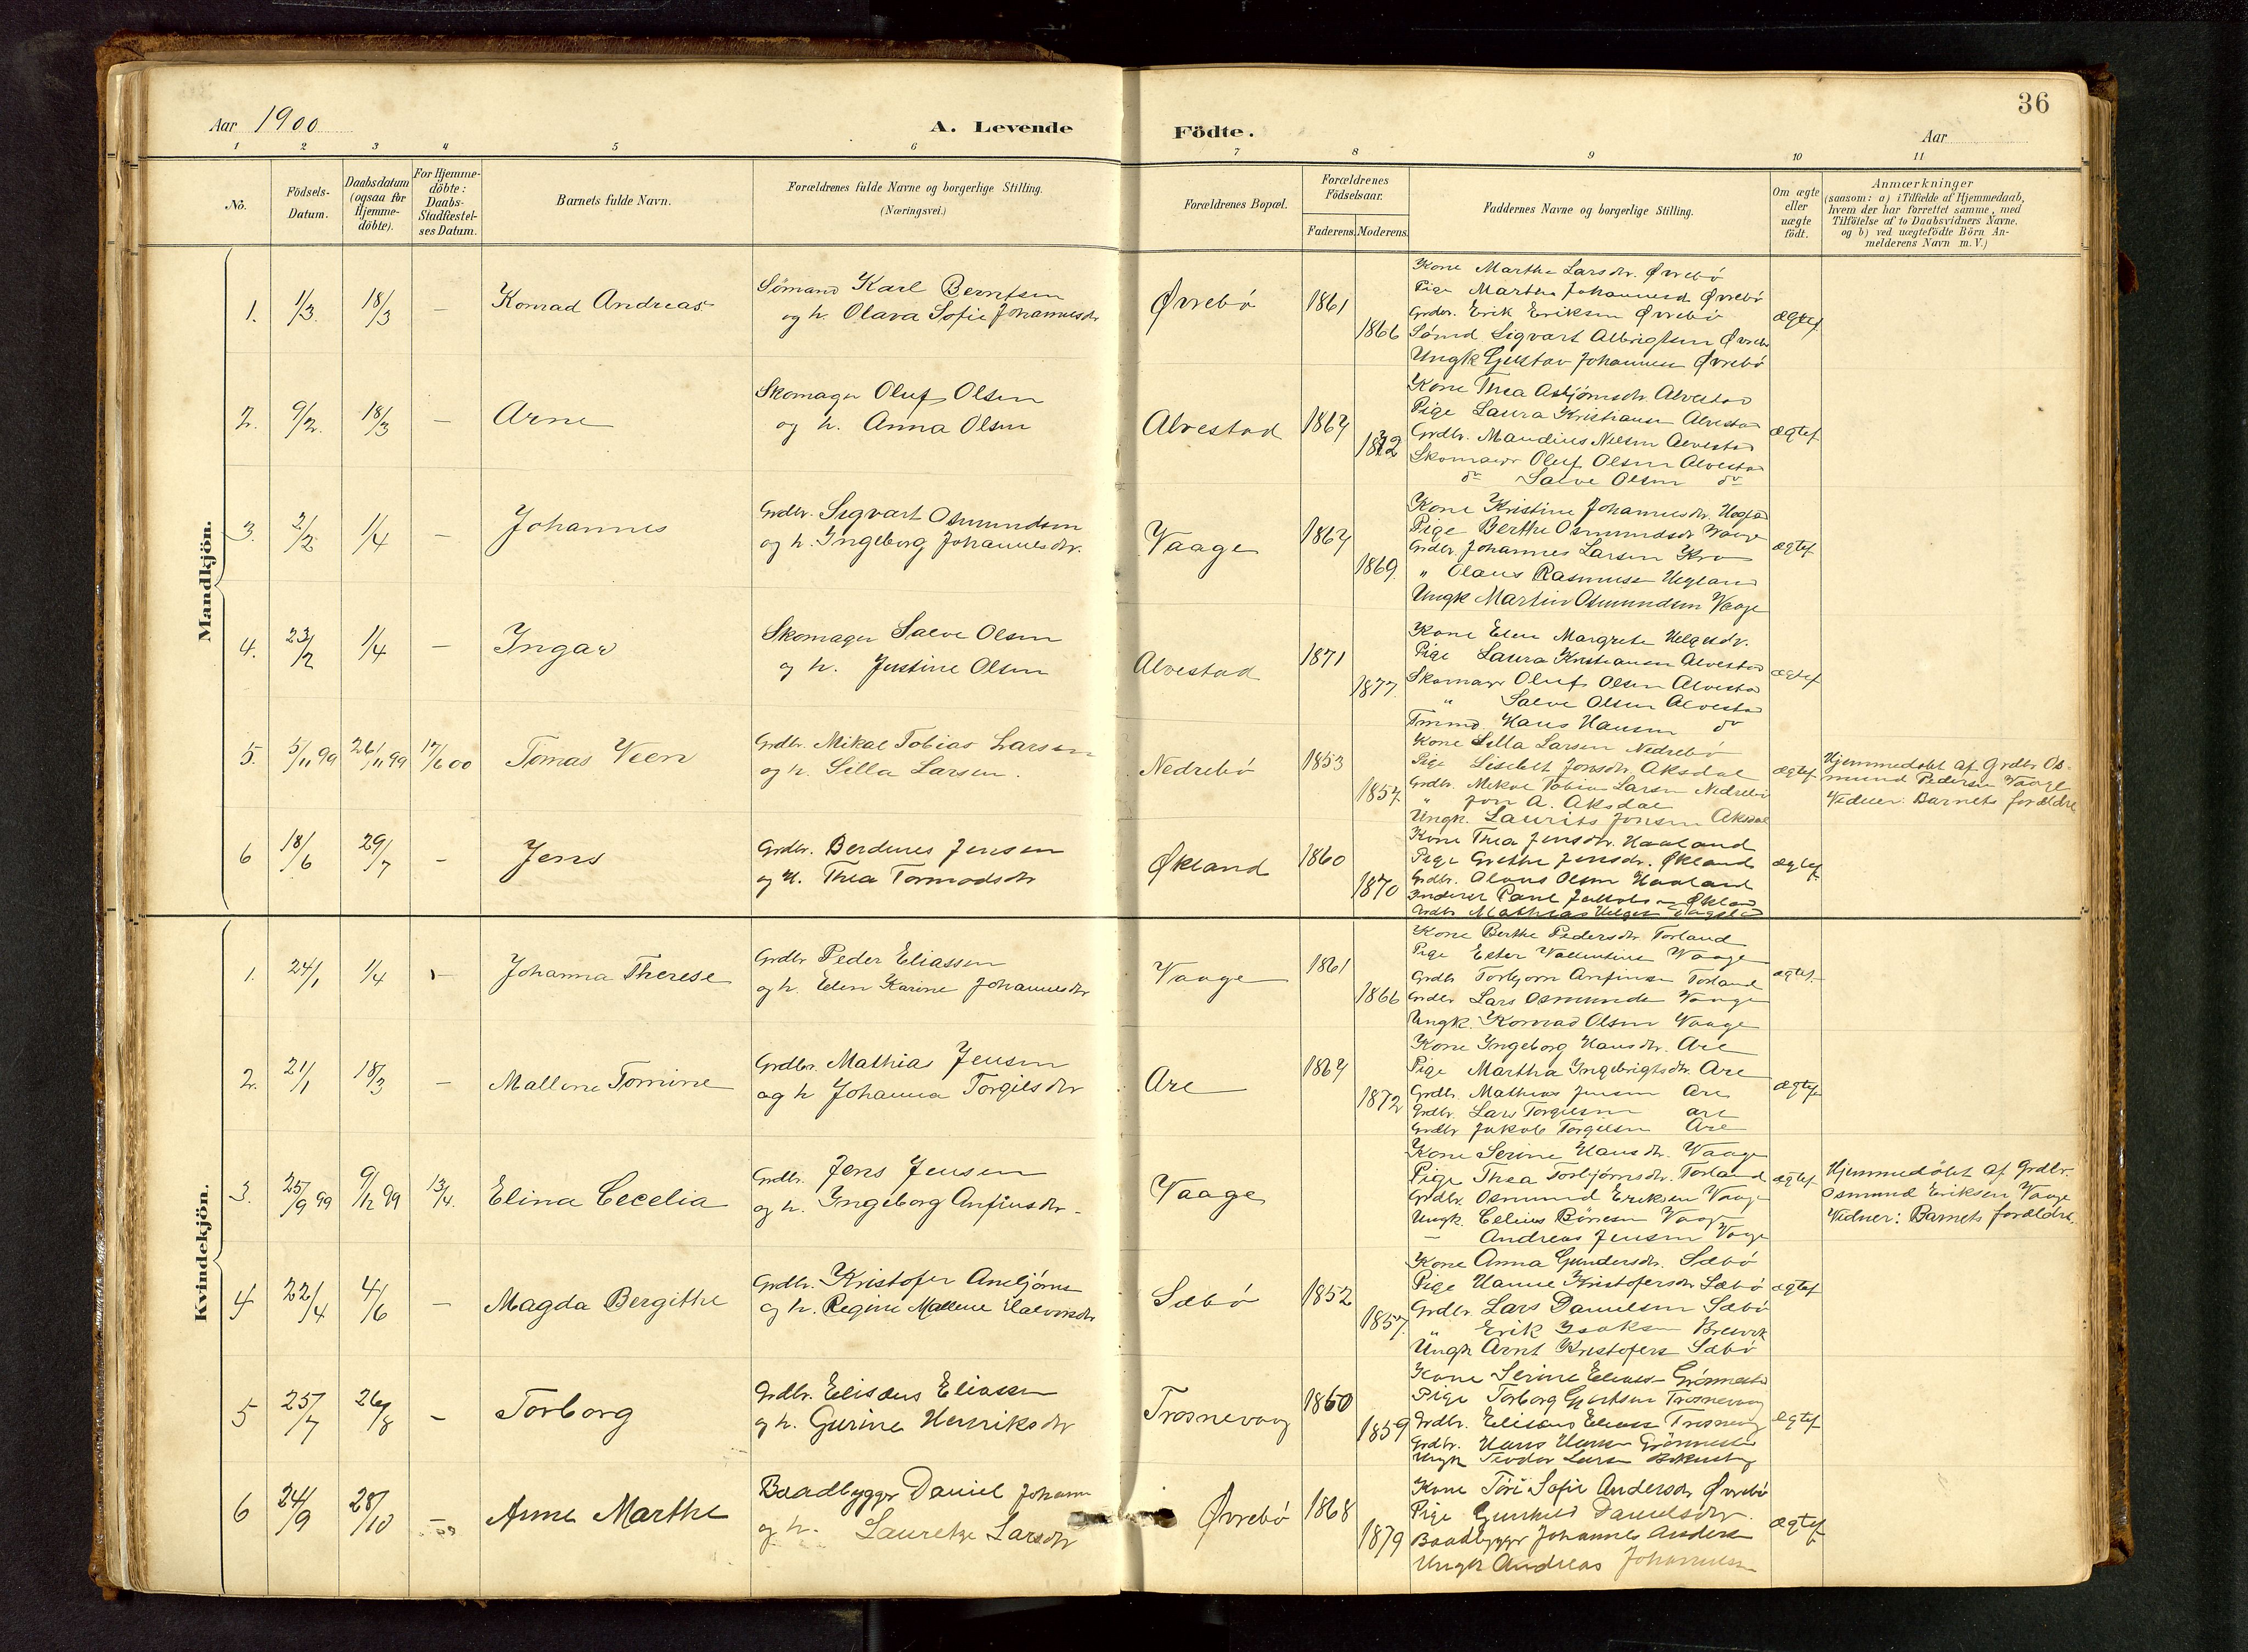 36
Aar 1900
A. Levende
Födte.
Aar
1 2 3 4 5 6 7 8 9 10 11
No.
Födsels-
Datum.
Daabsdatum
(ogsaa for
Hjemme-
döbte).
For Hjemme-
döbte:
Daabs-
Stadfæstel-
ses Datum.
Barnets fulde Navn.
Forældrenes fulde Navne og borgerlige Stilling.
(Næringsvei.)
Forældrenes Bopæl.
Forældrenes
Födselsaar.
Faderens. Moderens.
Faddernes Navne og borgerlige Stilling.
Om ægte
eller
uægte
födt.
Anmærkninger
(saasom: a) i Tilfælde af Hjemmedaab,
hvem der har forrettet samme, med
Tilföielse af to Daabsvidners Navne.
og b) ved uægtefödte Börn An-
melderens Navn m. V.)
Mandkjön.
1. 1/3. 18/3 — Konrad Andreas
Sömand Karl Berntsen
og h. Olava Sofie Johannesdr
Øvrebö 1861
1866
Kone Marthe Larsdr. Øvrebö
Pige Marthe Johannesd. Øvrebö
Grdbr. Erik Eriksen Øvrebö
Sömd Sigvart Albrigtsen Øvrebö
Ungk Gustav Johannesen Øvrebö
ægtef
2. 9/2. 18/3 — Arne
Skomager Oluf Olsen
og h. Anna Olsen
Alvestad 1867
1872
Kone Thea Asbjörnsdr. Alvestad
Pige Laura Kristiansen Alvestad
Grdbr. Maudius Nilsen Alvestad
Skomager Oluf Olsen Alvestad
do Salve Olsen do
ægtef
3. 2/2 1/4 — Johannes
Grdbr. Sigvart Osmundsen
og h. Ingeborg Johannesdr.
Vaage 1867
1869.
Kone Kristine Johannesdr.
Pige Berthe Osmundsdr Vaage
Grdbr. Johannes Larsen
" Olaus Rasmussen
Ungk Martin Osmundsen Vaage
ægtef
4. 23/2 1/4 — Ingar
Skomager Salve Olsen
og h. Justine Olsen
Alvestad 1871
1877.
Kone Elen Margrete Helgesdr.
Pige Laura Kristiansen Alvestad
Skomager Oluf Olsen Alvestad
" Salve Olsen Alvestad
Hans Hansen do
ægtef
5. 5/11 99 26/11 99 17/6 00 Tomas Veen
Grdbr. Mikal Tobias Larsen
og h. Silla Larsen.
Nedrebö 1853
1857
Kone Silla Larsen Nedrebö
Pige Lisebet Jonsdr. Aksdal
Grdbr. Mikal Tobias Larsen Nedrebö
" Jon A. Aksdal
Ungk. Laurits Jonsen Aksdal
ægtef
Hjemmedöbt af Grdbr Os-
mund Pedersen Vaage
Vidner: Barnets forældre
6 18/6 29/7 — Jens
Grdbr. Berdines Jensen
og H. Thea Tormodsdr
Økland 1860
1870
Kone Thea Jensdr. Haaland
Pige Grethe Jensdr. Økland
Grdbr. Olaus Olsen Haaland
Inderst Paul Jakobsen Økland
Grdbr Mathias Helgesen
ægtef
Kvindekjön.
1. 24/1 1/4 — Johanna Therese
Grdbr Peder Eliassen
og h. Elen Karine Johannesdr
Vaage 1861
1866
Kone Berthe Pedersdr Torland
Pige Ester Vallentine Vaage
Grdbr Torbjorn Anfinsen Torland
Grdbr Lars Osmundsen Vaage
Ungk. Konrad Olsen Vaage
ægtef.
2. 21/1 18/3 — Mallene Tomine
Grdbr. Mathias Jensen
og h Johanna Torgilsdr
Are 1867
1872
Kone Ingeborg Hansdr. Are
Pige Martha Ingebrigtsdr. Are
Grdbr. Mathias Jensen Are
Grdbr. Lars Torgilsen are
Grdbr Jakob Torgilsen Are
ægtef
3. 25/9 99 9/12 99 13/4. Elina Cecelia
Grdbr. Jens Jensen
og h. Ingeborg Anfinsdr.
Vaage
Kone Serine Hansdr. Vaage
Pige Thea Torbjörnsdr. Torland
Grdbr Osmund Eriksen Vaage
Ungk. Celius Börresen Vaage
— Andreas Jensen Vaage
ægtef
Hjemmedöbt af Grdbr.
Osmund Eriksen Vaage
Vidner: Barnets forældre.
4 22/4 4/6 — Magda Bergithe
Grdbr. Kristofer Ambjörns
og h. Regine Mallene Halvorsdr
Sæbö 1852
1857.
Kone Anna Gundersdr. Sæbö
Pige Hanne Kristofersdr Sæbö
Grdbr. Lars Danielsen Sæbö
" Erik Isaksen Brewik
Ungk Arnt Kristofers Sæbö
ægtef
5 25/7 26/8 — Torborg
Grdbr. Elisæus Eliassen
og h. Gurine Henriksdr
Trosnevaag 1860
1859
Kone Serine Grönnestad
Pige Torborg Trosnevaag
Grdbr. Elisæus Trosnevaag
Grdbr. Hans Hansen Grönnestad
Ungk Teodor Larsen
ægtef
6 24/9 28/10 — Anne Marthe
Baadbygger Daniel Johann
og h. Lauretze Larsdr
Øvrebö 1868
1879
Kone Töri Sofie Andersdr Øvrebö
Pige Gunhild Danielsdr.
Baadbygger Johannes Anders
Ungk Andreas Johannesen
ægtef